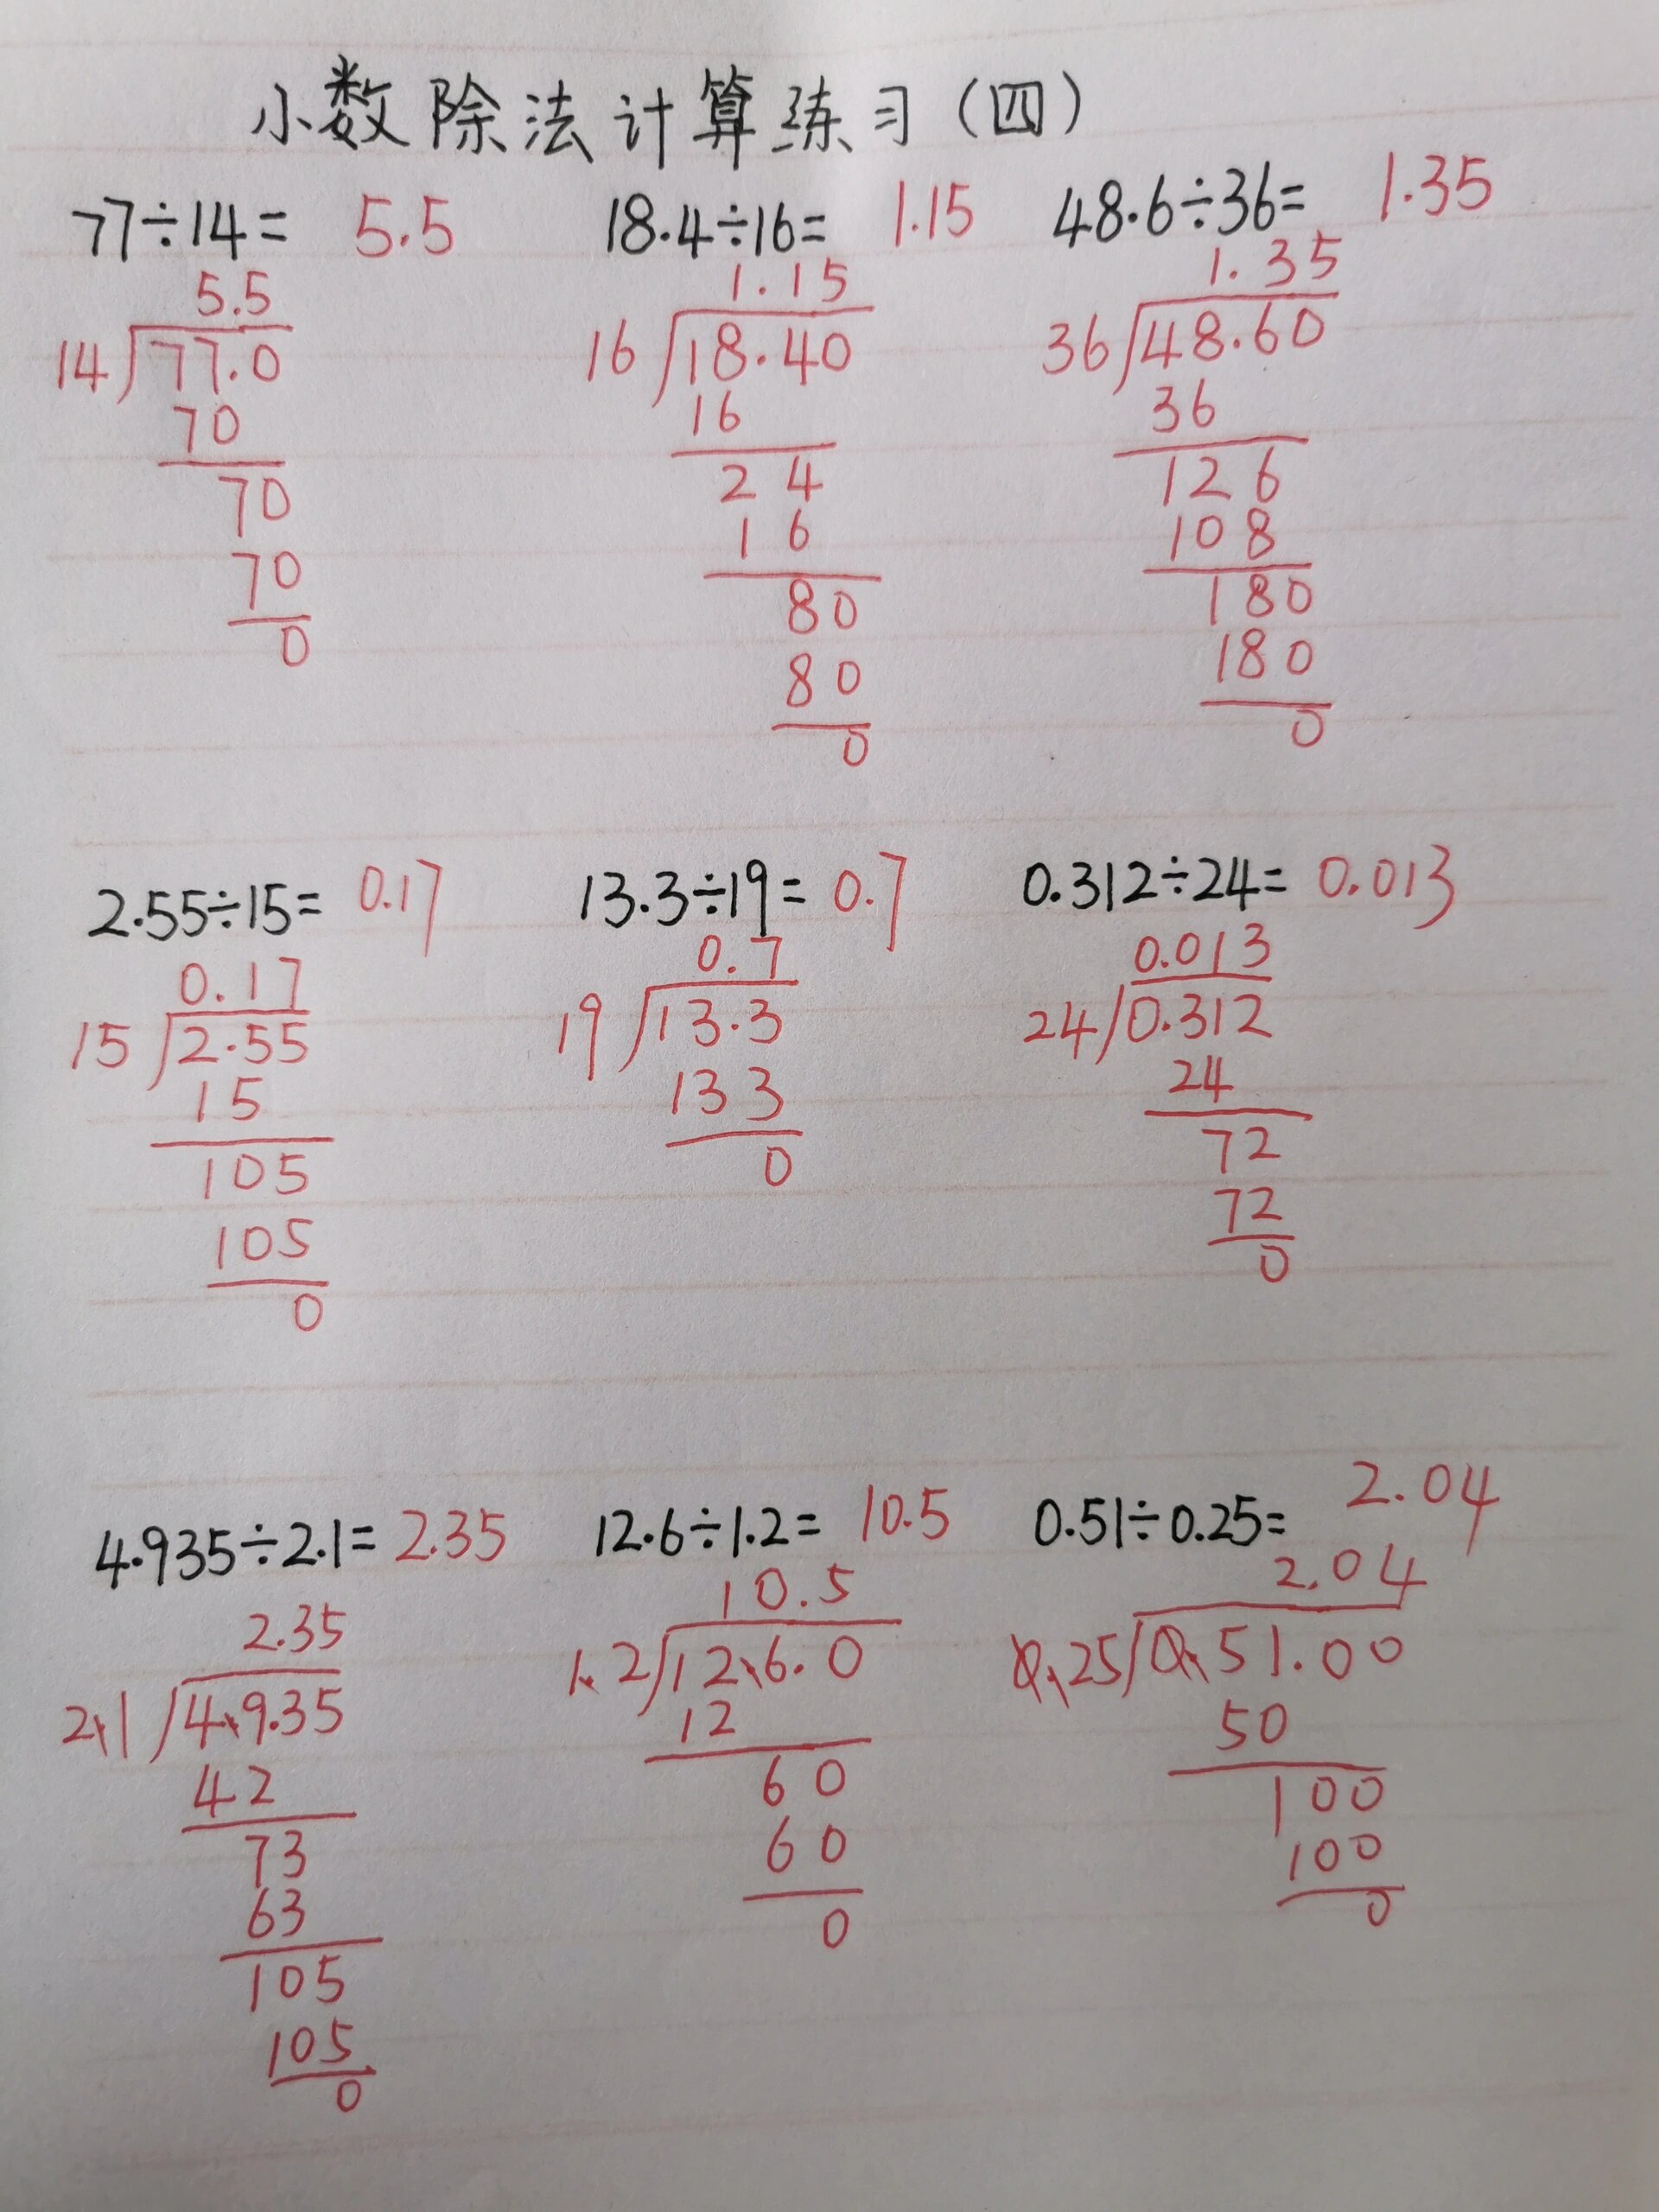 小数除法计算练习(四)
77÷14= 5.5
5.5
14 77.0
70
70
70
0
18.4÷16= 1.15
1.15
16 18.40
16
2 4
1 6
80
80
0
48.6÷36= 1.35
1.35
36 48.60
36
12 6
10 8
180
180
0
2.55÷15= 0.17
0.17
15 2.55
15
105
105
0
13.3÷19= 0.7
0.7
19 13.3
13 3
0
0.312÷24= 0.013
0.013
24 0.312
24
72
72
0
4.935÷2.1= 2.35
2.35
2.1 4.9.35
42
73
63
105
105
0
12.6÷1.2= 10.5
10.5
1.2 12.6.0
12
60
60
0
0.51÷0.25= 2.04
2.04
0.25 0.51.00
50
100
100
0